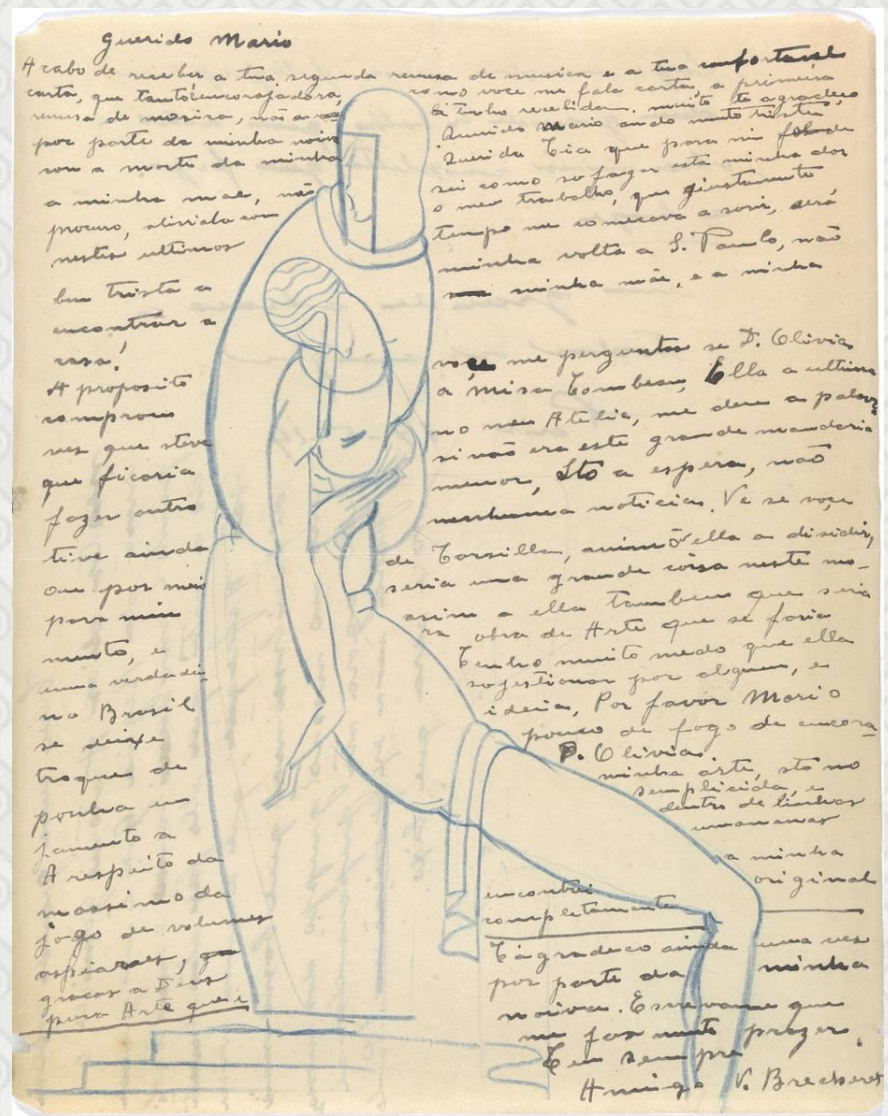 Querido Mario
Acabo de receber a tua segunda remesa de musica e a tua confortavel
carta, que tanto encorajadora, como voce me fala carta, a primeira
remesa de mosica, não tenho recebida. muito te agradeço
por parte da minha noiva Querido Mario ando muito triste
con a morte da minha Querida Tia que para mi foi de
a minha mae, não sei como so fazer esta minha dor
procuro, alivida con o meu trabalho, que giustamente
nestes ultimos tempo me comecava a sorir, será
ben trista a minha volta a S. Paulo, não
encontrar a minha mãe, e a minha
casa!
A proposito voçe me pergunta se D. Olivia
comprou a Misa Tombeau, Ella a ultima
vez que steve no meu Atelie, me deu a palavra
que ficaria si não era este grande mandaria
fazer outro menor, Sto a espera, não
tive ainda nenhuma noticias. Ve se voçe
ou por meio de Tarsilla, ella a disidir,
para mim seria una grande coisa neste mo-
mento, e asim a ella tambem que seria
uma verdadei- ra obra de Arte que se faria
no Brasil Tenho muito medo que ella
se deixe sogestionar por alguen, e
troque de ideia, Por favor Mario
ponha un pouco de fogo de encora-
jamento a D. Olivia.
A respeito da minha arte, sto no
massimo da semplicida, e
jogo de volumes dentro de linhas
graças a Deus encontrei a minha
pura Arte que é completamente original
Te agradeco ainda uma vez
por parte da minha
noiva. Escrevame que
me fas muito prazer.
Teu sempre
Amigo V. Brecheret